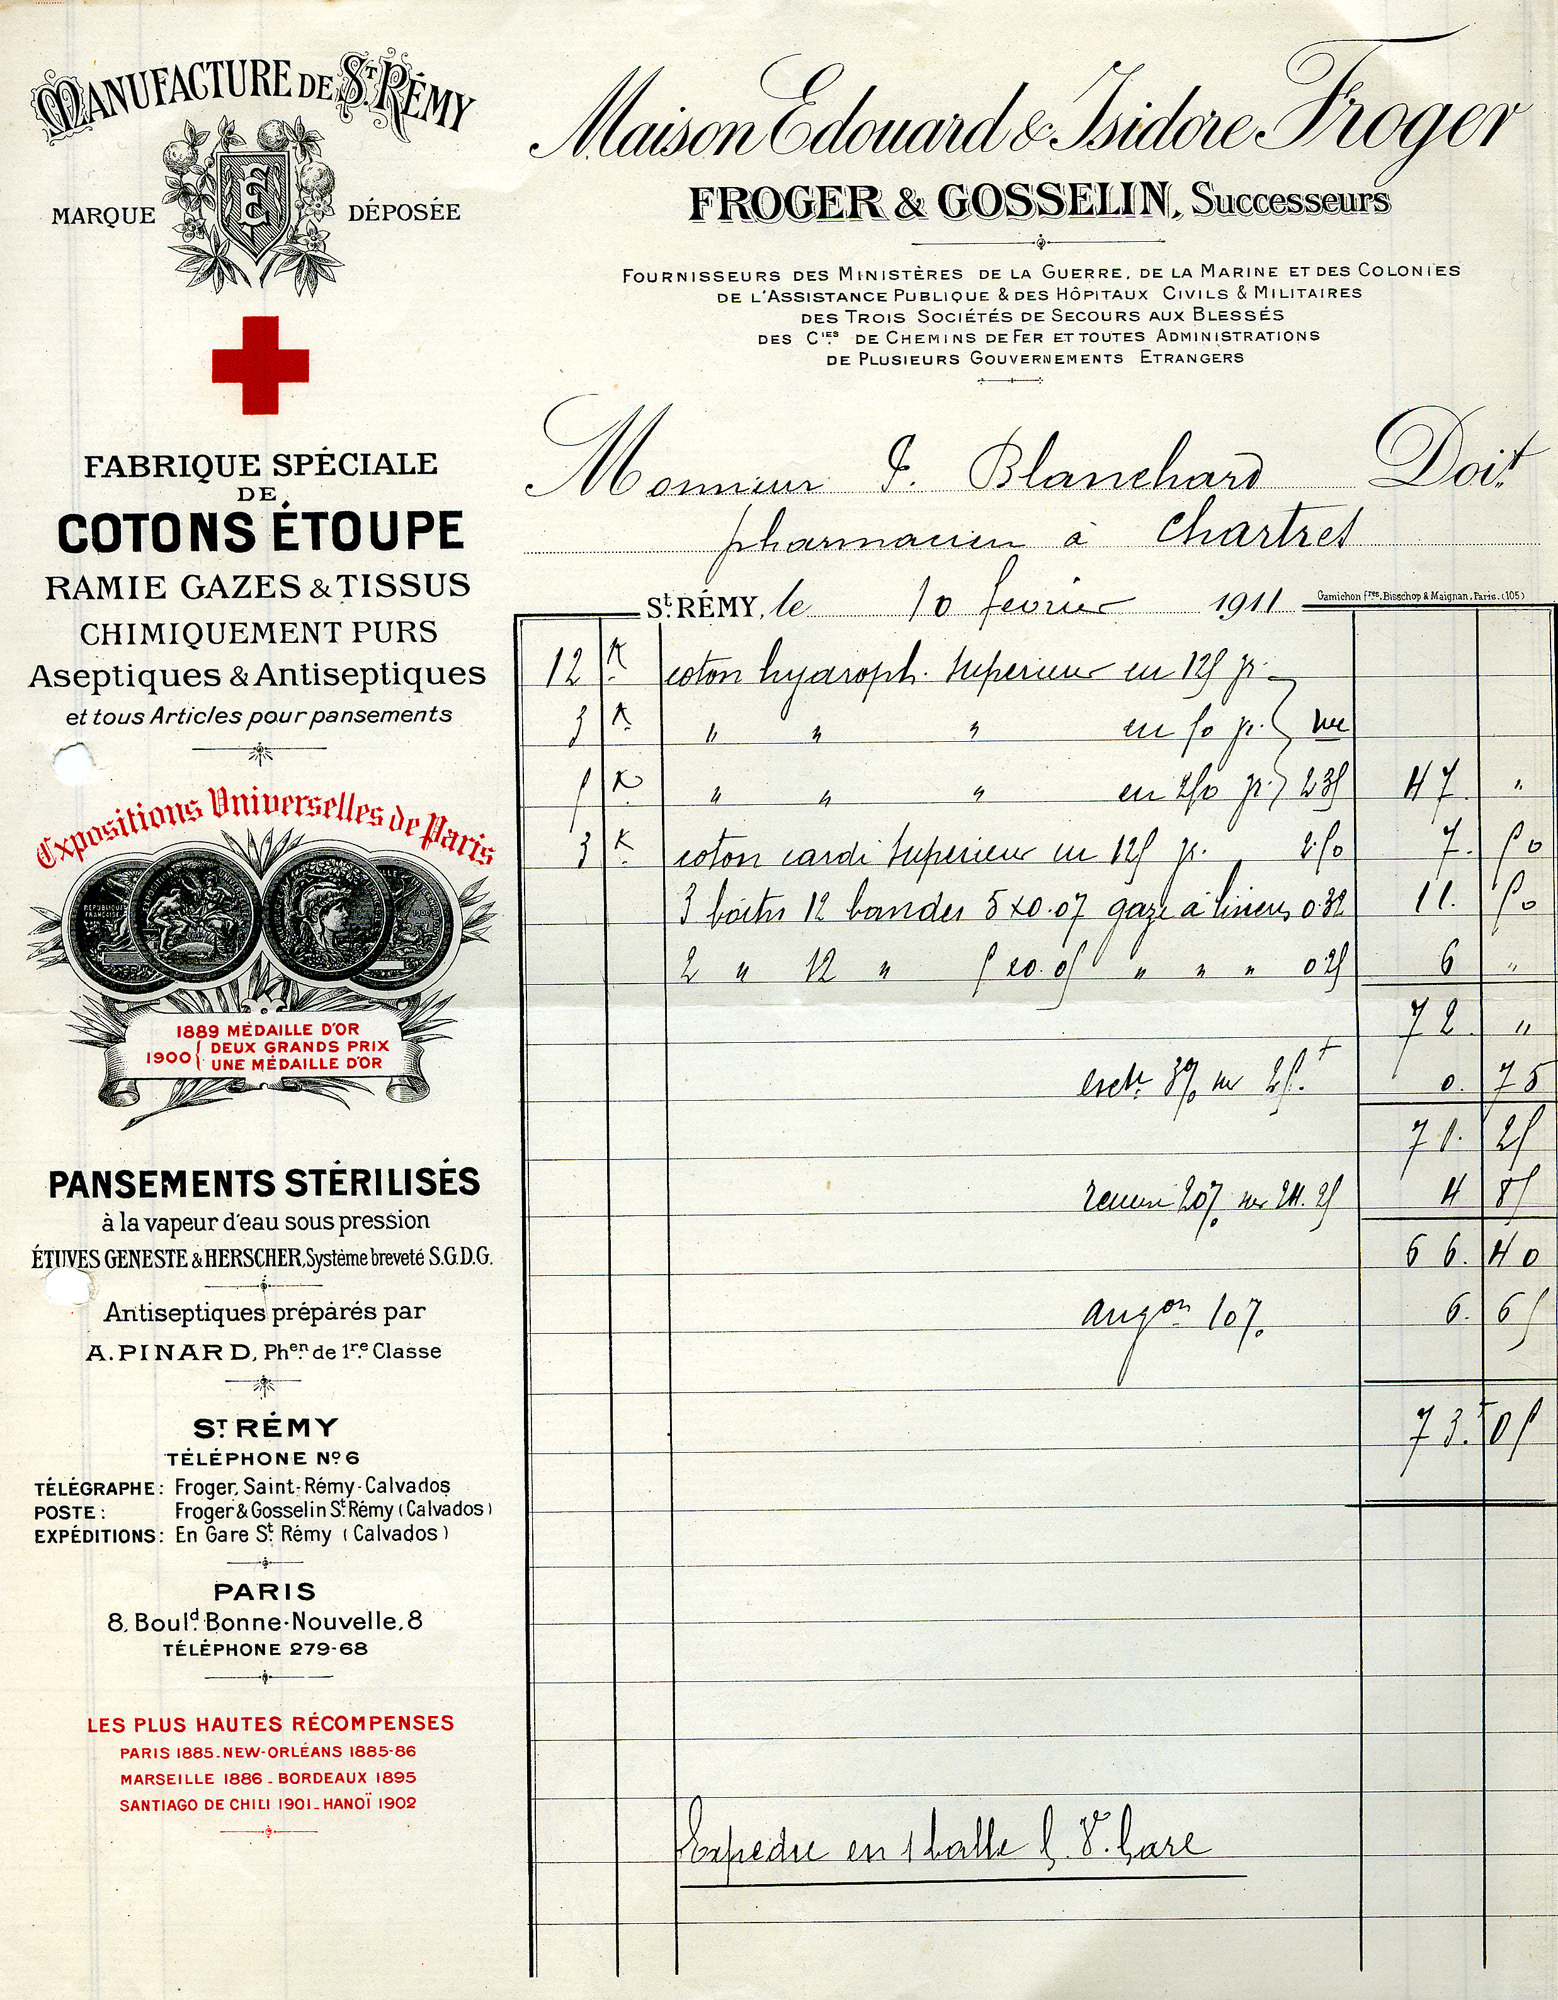 MANUFACTURE DE ST RÉMY
MARQUE DÉPOSÉE
FABRIQUE SPÉCIALE
DE
COTONS ÉTOUPE
RAMIE GAZES & TISSUS
CHIMIQUEMENT PURS
Aseptiques & Antiseptiques
et tous Articles pour pansements
Expositions Universelles de Paris
RÉPUBLIQUE
FRANÇAISE
1889 MÉDAILLE D'OR
1900 { DEUX GRANDS PRIX
UNE MÉDAILLE D'OR
PANSEMENTS STÉRILISÉS
à la vapeur d'eau sous pression
ÉTUVES GENESTE & HERSCHER, Système breveté S.G.D.G.
Antiseptiques préparés par
A. PINARD, Phen. de 1re Classe
ST RÉMY
TÉLÉPHONE No 6
TÉLÉGRAPHE: Froger, Saint-Rémy-Calvados
POSTE: Froger & Gosselin St Rémy (Calvados)
EXPÉDITIONS: En Gare St Rémy (Calvados)
PARIS
8, Bould. Bonne-Nouvelle, 8
TÉLÉPHONE 279-68
LES PLUS HAUTES RÉCOMPENSES
PARIS 1885_NEW-ORLÉANS 1885-86
MARSEILLE 1886_BORDEAUX 1895
SANTIAGO DE CHILI 1901_HANOÏ 1902
Maison Edouard & Isidore Froger
FROGER & GOSSELIN, Successeurs
FOURNISSEURS DES MINISTÈRES DE LA GUERRE, DE LA MARINE ET DES COLONIES
DE L'ASSISTANCE PUBLIQUE & DES HÔPITAUX CIVILS & MILITAIRES
DES TROIS SOCIÉTÉS DE SECOURS AUX BLESSÉS
DES Cies DE CHEMINS DE FER ET TOUTES ADMINISTRATIONS
DE PLUSIEURS GOUVERNEMENTS ETRANGERS
Monsieur J. Blanchard Doit
pharmacien à Chartres
St RÉMY, le 10 février 1911
Gamichon fres, Bisschop & Maignan, Paris. (105)
12 K coton hydroph. supérieur en 125 gr.
3 K " " " en 50 gr.
5 K " " " en 250 gr. 2 35 47 "
3 K coton cardé supérieur en 125 gr. 2.50 7. 50
3 boites 12 bandes 5x0.07 gaze à 0.32 11. 50
2 " 12 " 5x0.05 " " " 0 25 6 "
72 "
escte 3% sur 25.f 0. 75
71. 25
remise 20% sur 24.25 4 85
66. 40
augon 10% 6. 65
73.f 05
Expédié en 1 balle G. V. Gare